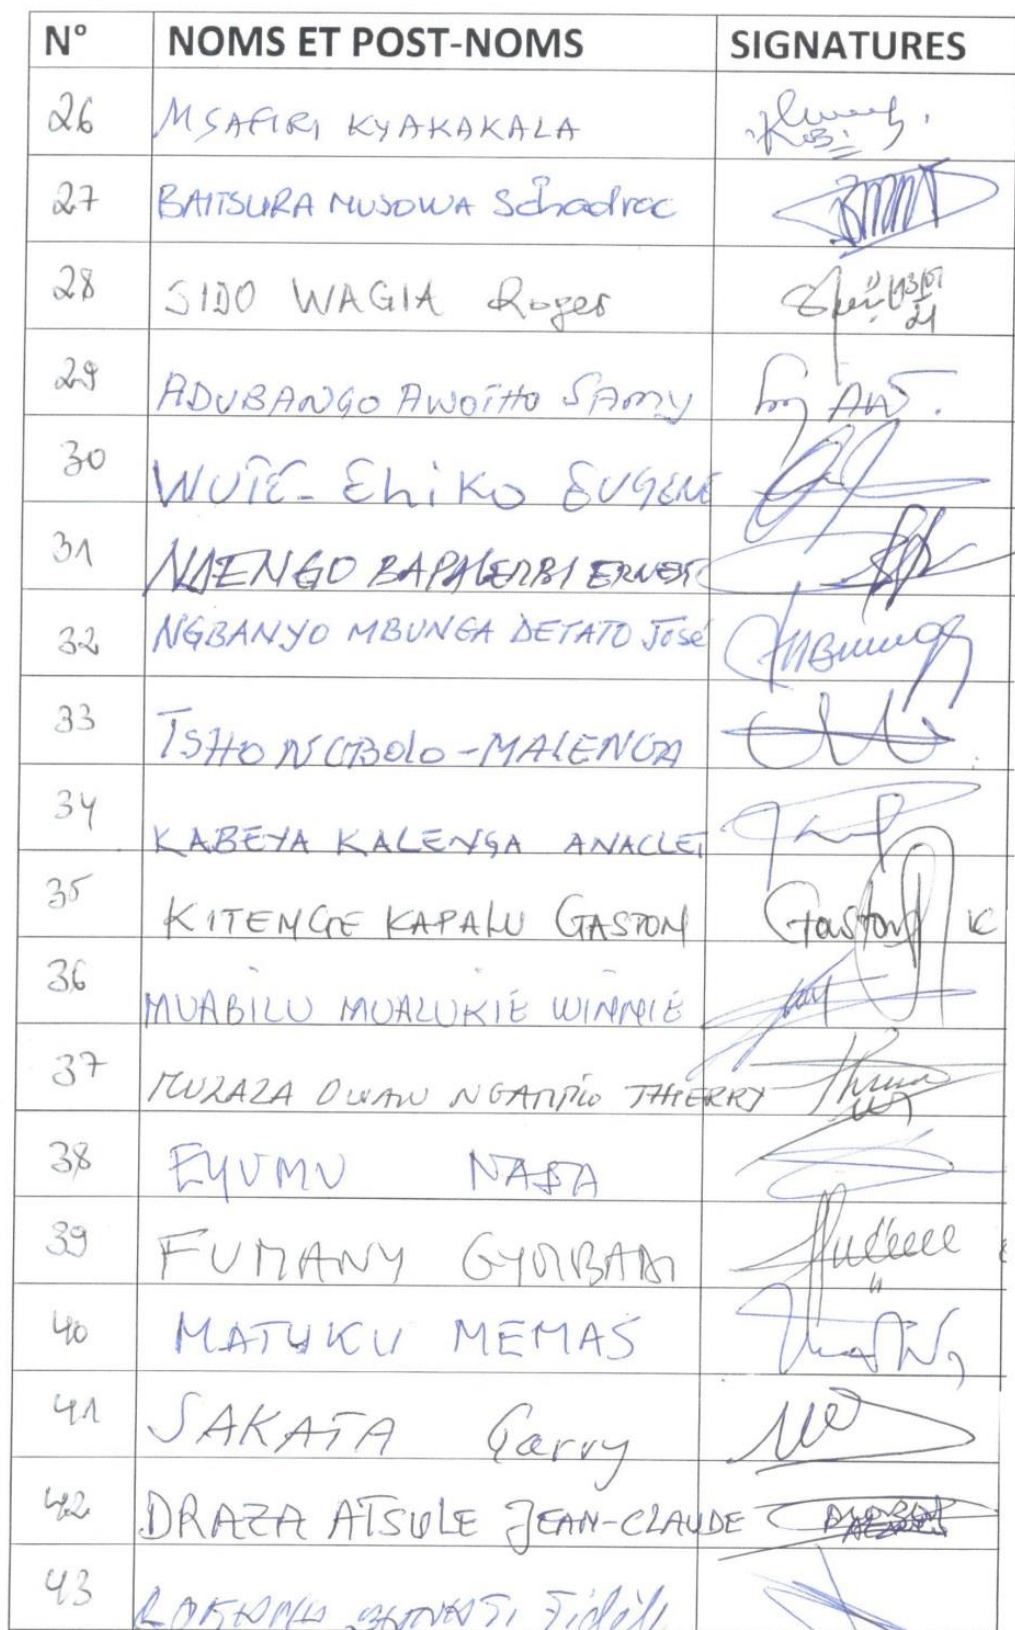 N° NOMS ET POST-NOMS SIGNATURES
26 MSAFIRI KYAKAKALA
27 BAITSURA MUSOWA Schadrac
28 SIDO WAGIA Roger
29 ADUBANGO AWOITHO SAMY
30 WUTE- Ehiko EUGENE
31 ERNEST
32 NGBANYO MBUNGA DETATO José
33 TSHONGBOLO-MALENGA
34 KABEYA KALENGA ANACLET
35 KITENGE KAPALU GASTON Gaston K
36 MUABILU MUALUKIÉ WINNIE
37 MULAZA THIERRY
38 EYUMU NABA
39 FUMANY
40 MATUKU MEMAS
41 SAKATA Garry
42 DRAZA ATSULE JEAN-CLAUDE
43